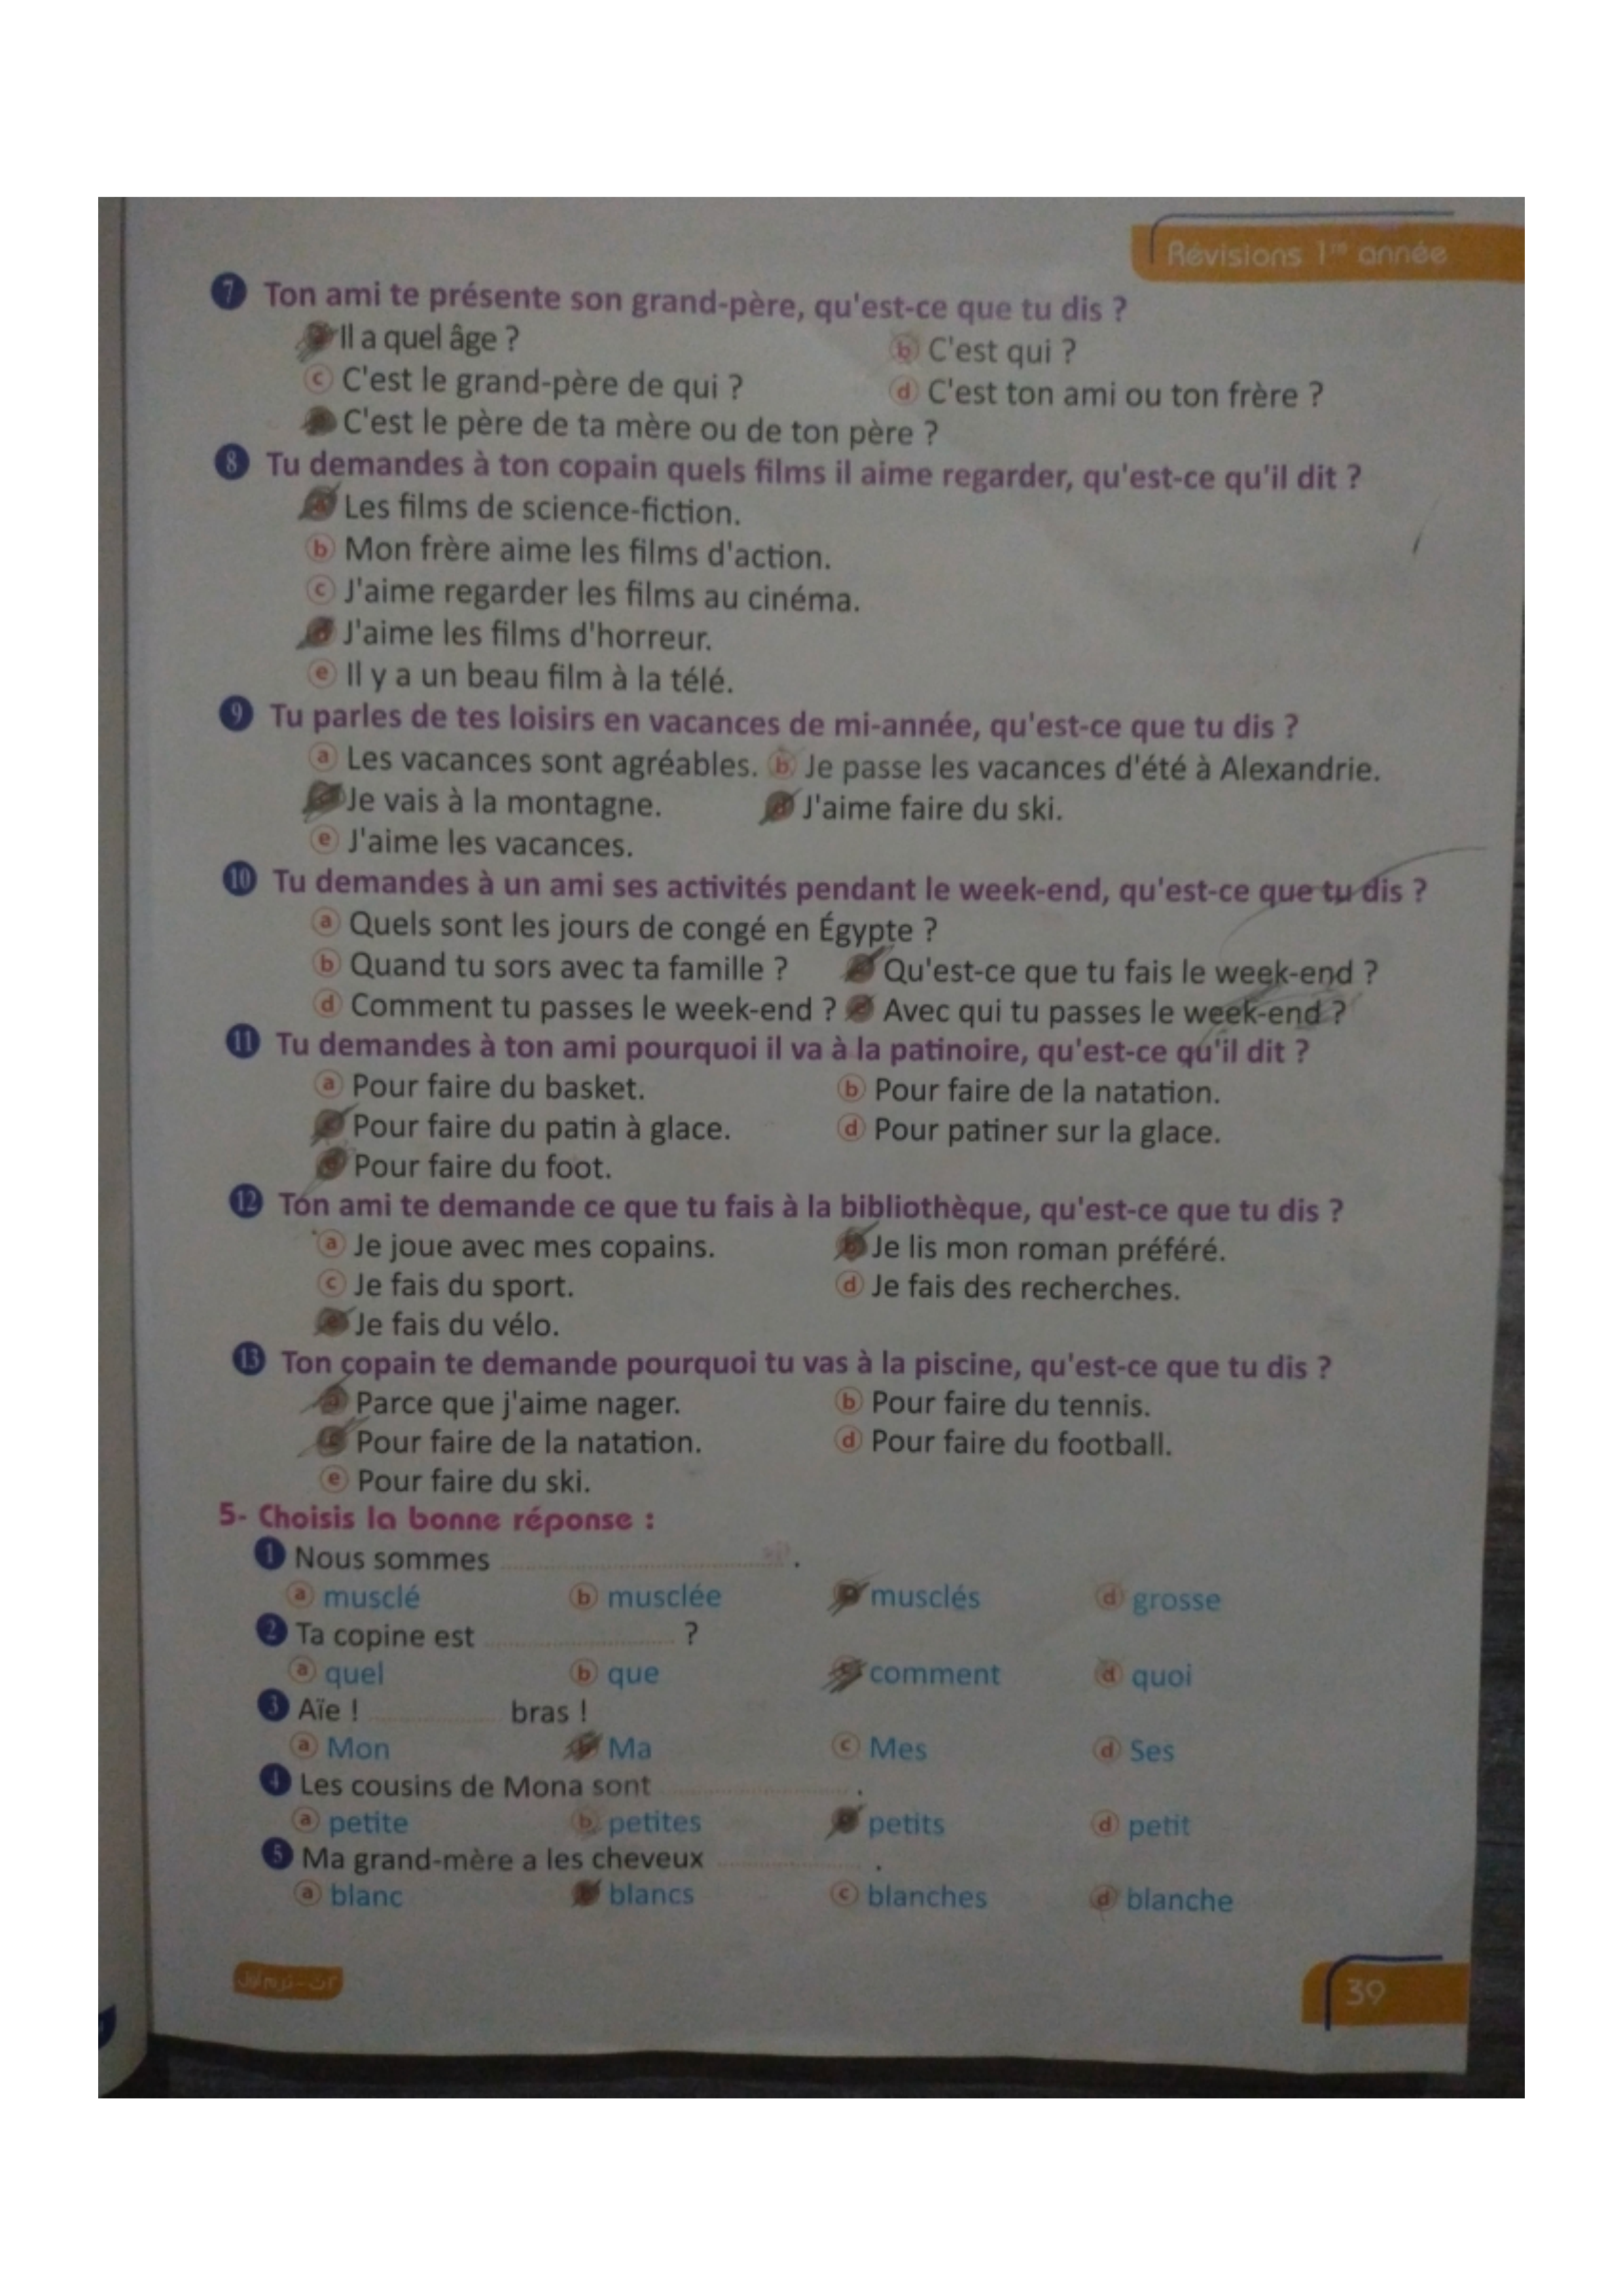 Révisions 1re année
7 Ton ami te présente son grand-père, qu'est-ce que tu dis ?
Il a quel âge ? b C'est qui ?
c C'est le grand-père de qui ? d C'est ton ami ou ton frère ?
C'est le père de ta mère ou de ton père ?
8 Tu demandes à ton copain quels films il aime regarder, qu'est-ce qu'il dit ?
a Les films de science-fiction.
b Mon frère aime les films d'action.
c J'aime regarder les films au cinéma.
d J'aime les films d'horreur.
e Il y a un beau film à la télé.
9 Tu parles de tes loisirs en vacances de mi-année, qu'est-ce que tu dis ?
a Les vacances sont agréables. b Je passe les vacances d'été à Alexandrie.
Je vais à la montagne. d J'aime faire du ski.
e J'aime les vacances.
10 Tu demandes à un ami ses activités pendant le week-end, qu'est-ce que tu dis ?
a Quels sont les jours de congé en Égypte ?
b Quand tu sors avec ta famille ? Qu'est-ce que tu fais le week-end ?
d Comment tu passes le week-end ? e Avec qui tu passes le week-end ?
11 Tu demandes à ton ami pourquoi il va à la patinoire, qu'est-ce qu'il dit ?
a Pour faire du basket. b Pour faire de la natation.
c Pour faire du patin à glace. d Pour patiner sur la glace.
e Pour faire du foot.
12 Ton ami te demande ce que tu fais à la bibliothèque, qu'est-ce que tu dis ?
a Je joue avec mes copains. b Je lis mon roman préféré.
c Je fais du sport. d Je fais des recherches.
e Je fais du vélo.
13 Ton copain te demande pourquoi tu vas à la piscine, qu'est-ce que tu dis ?
a Parce que j'aime nager. b Pour faire du tennis.
c Pour faire de la natation. d Pour faire du football.
e Pour faire du ski.
5- Choisis la bonne réponse :
1 Nous sommes .................... .
a musclé b musclée musclés d grosse
2 Ta copine est .................... ?
a quel b que c comment d quoi
3 Aïe ! .............. bras !
a Mon b Ma c Mes d Ses
4 Les cousins de Mona sont .................... .
a petite b petites petits d petit
5 Ma grand-mère a les cheveux .................... .
a blanc b blancs c blanches d blanche
39